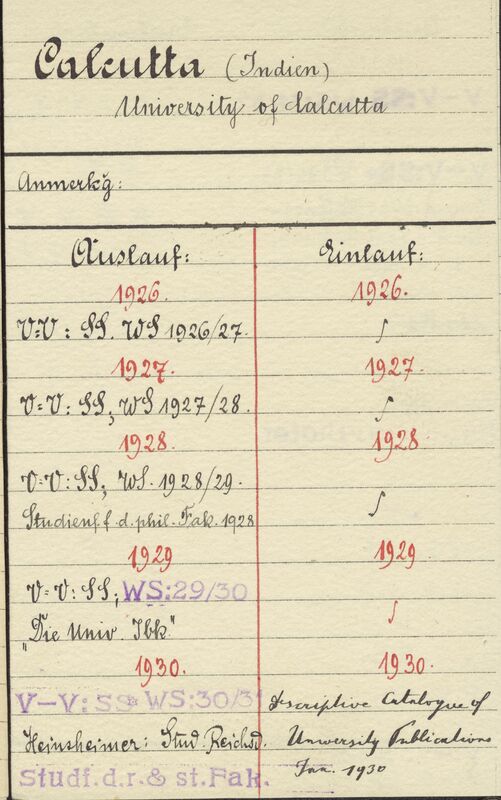 Calcutta (Indien)
University of Calcutta
Anmerkg:
Auslauf: Einlauf:
1926. 1926.
V=V: SS. WS 1926/27. ∫
1927. 1927.
V=V: SS, WS 1927/28. ∫
1928. 1928.
V=V: SS, WS. 1928/29.
Studienf. f. d. phil. Fak. 1928 ∫
1929 1929
V=V: SS; WS:29/30 ∫
"Die Univ. Ibk"
1930. 1930.
V-V: SS WS:30/31 Descriptive Catalogue of
Heinsheimer: Stud. Reichsd. University Publications
Studf.d.r.& st.Fak. Jan. 1930